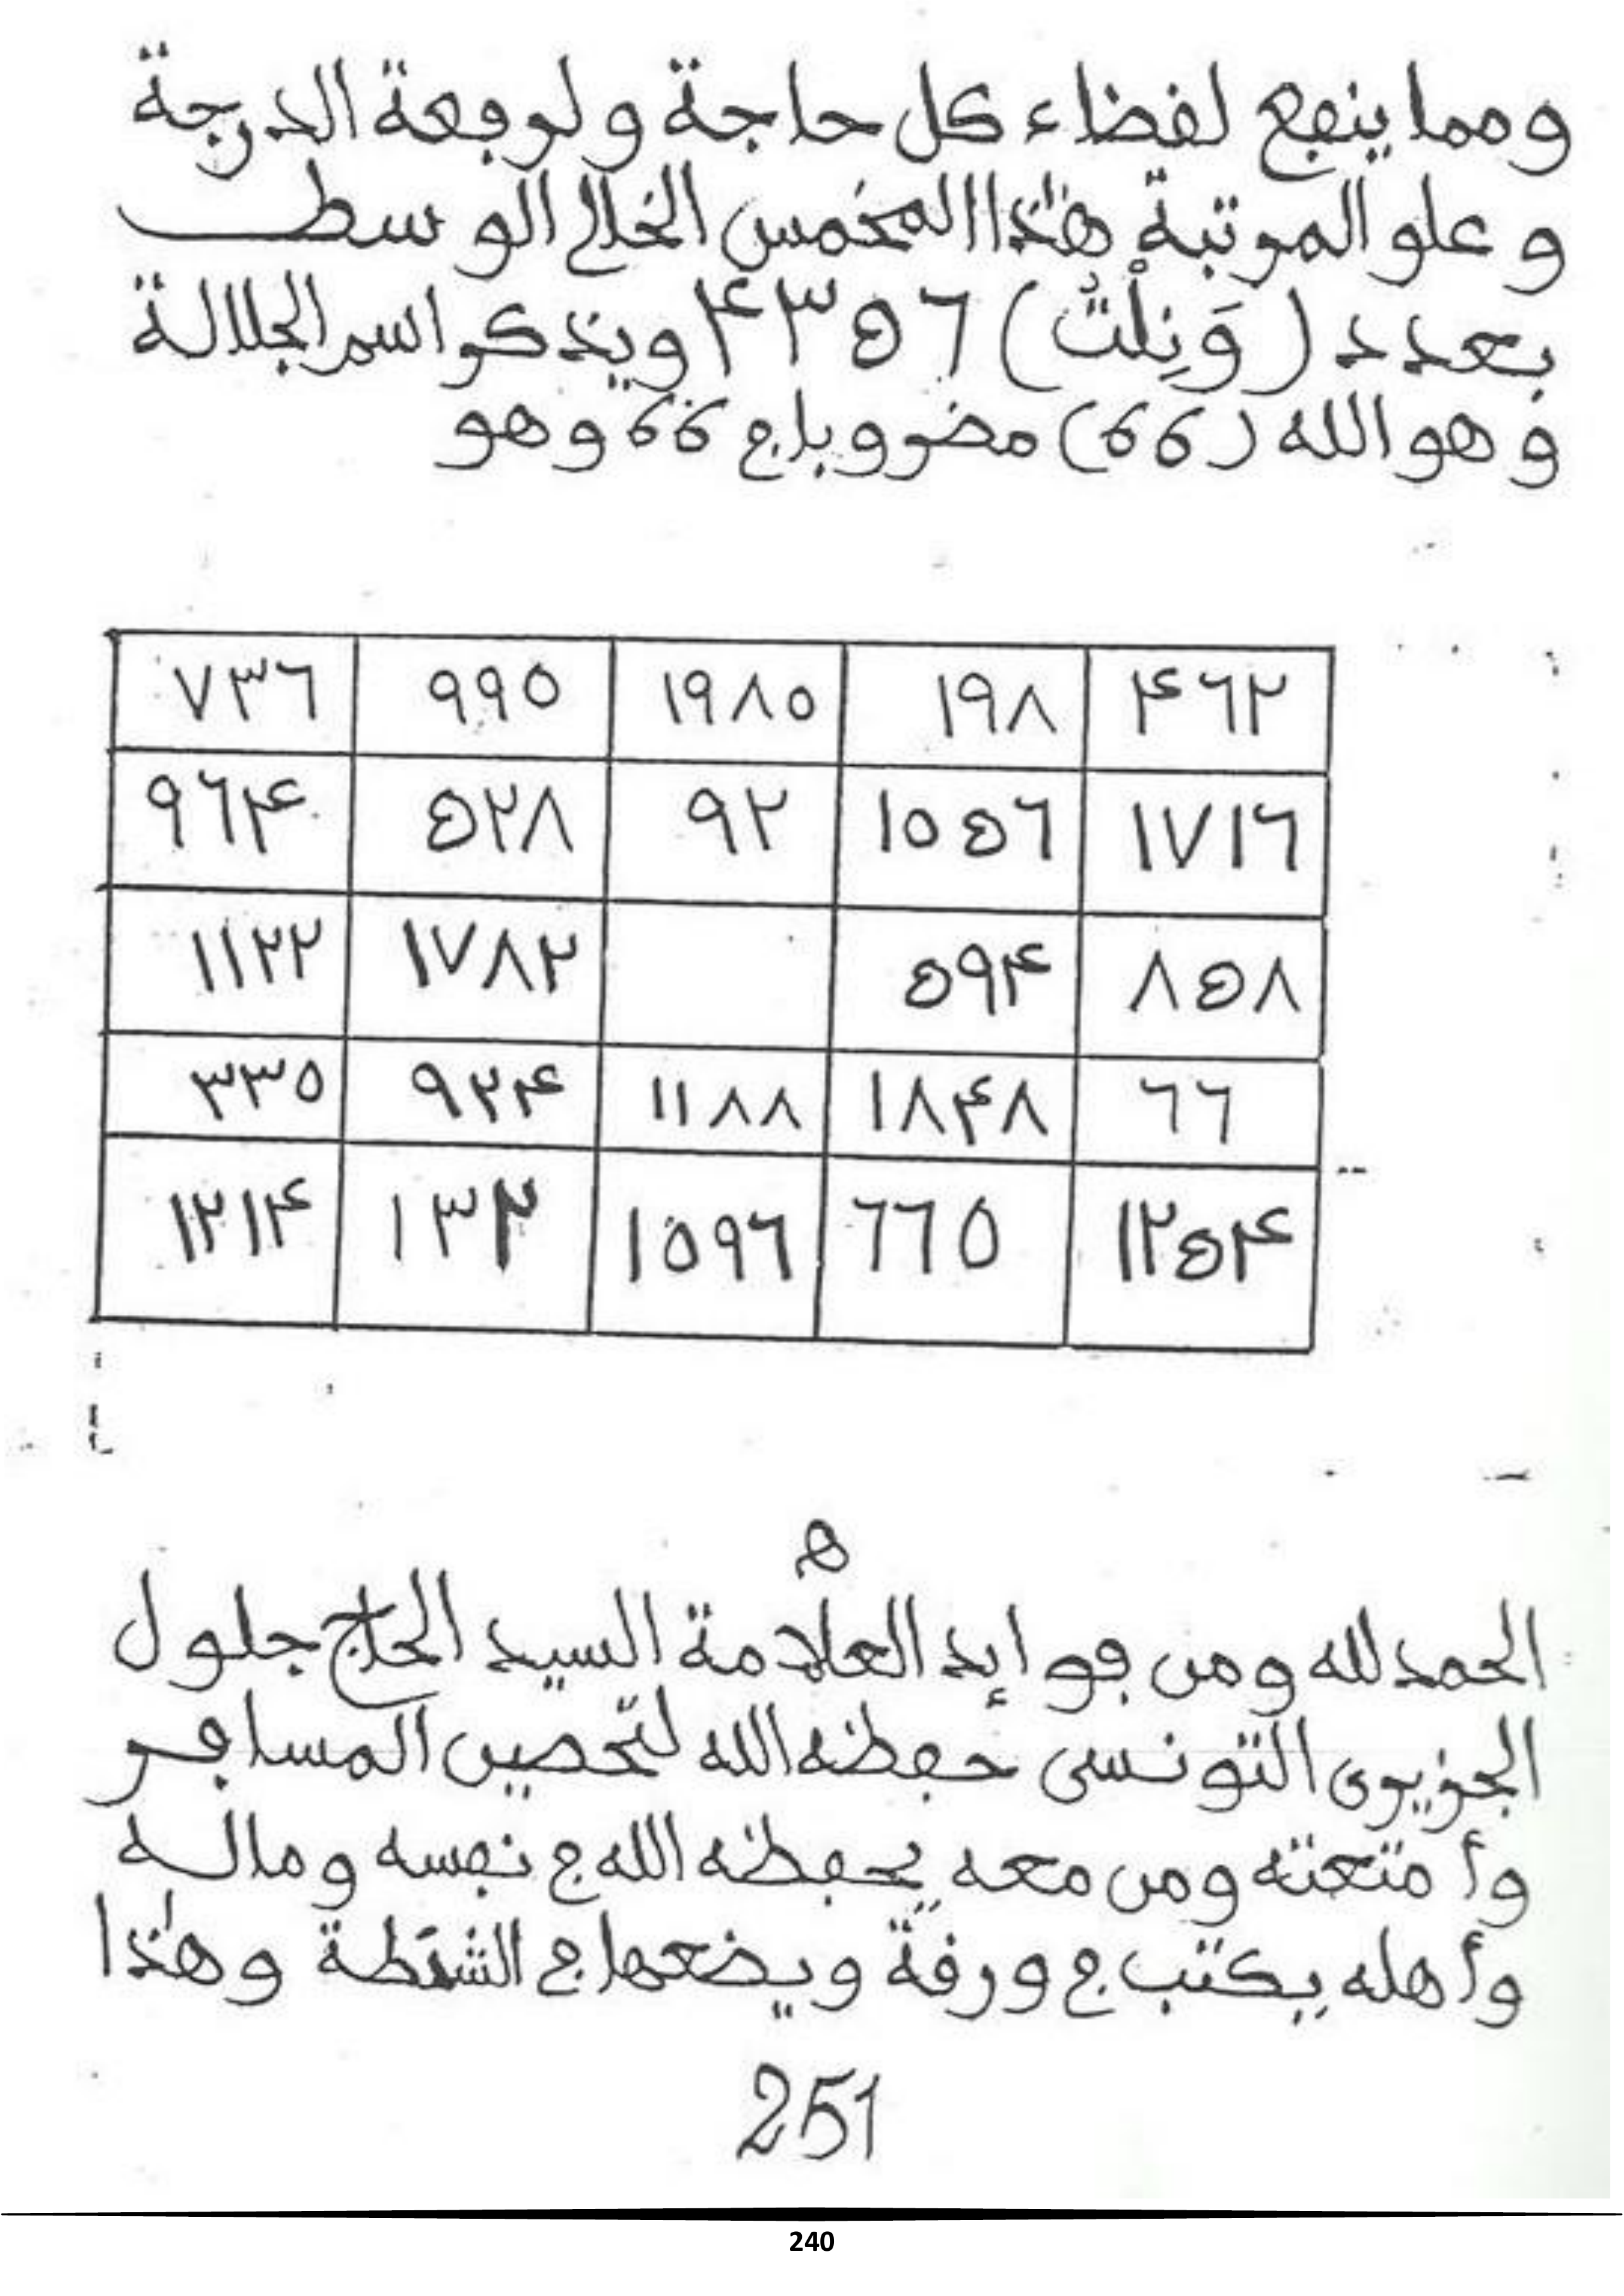 ومما ينفع لقضاء كل حاجة ولرفعة الدرجة
وعلو المرتبة هٰذا المخمس الخالي الوسط
بعدد (وَنِلْتُ) ۴٣٥٦ ويذكر اسم الجلالة
وهو الله (66) مضروبا في 66 وهو
٧٣٦ ٩٩٥ ١٩٨٥ ١٩٨ ۴٦٢
٩٦۴ ٥٢٨ ٩٢ ١٥٥٦ ١٧١٦
١١٢٢ ١٧٨٢ ٥٩۴ ٨٥٨
٣٣٥ ٩٢۴ ١١٨٨ ١٨۴٨ ٦٦
١٢١۴ ١٣٢ ١٥٩٦ ٦٦٥ ١٢٥۴
ه
الحمد لله ومن فوايد العلامة السيد الحاج جلول
الجزيري التونسي حفظه الله لتحصين المسافر
وأمتعته ومن معه يحفظه الله في نفسه وماله
وأهله يكتب في ورقة ويضعها في الشنطة وهٰذا
251
240